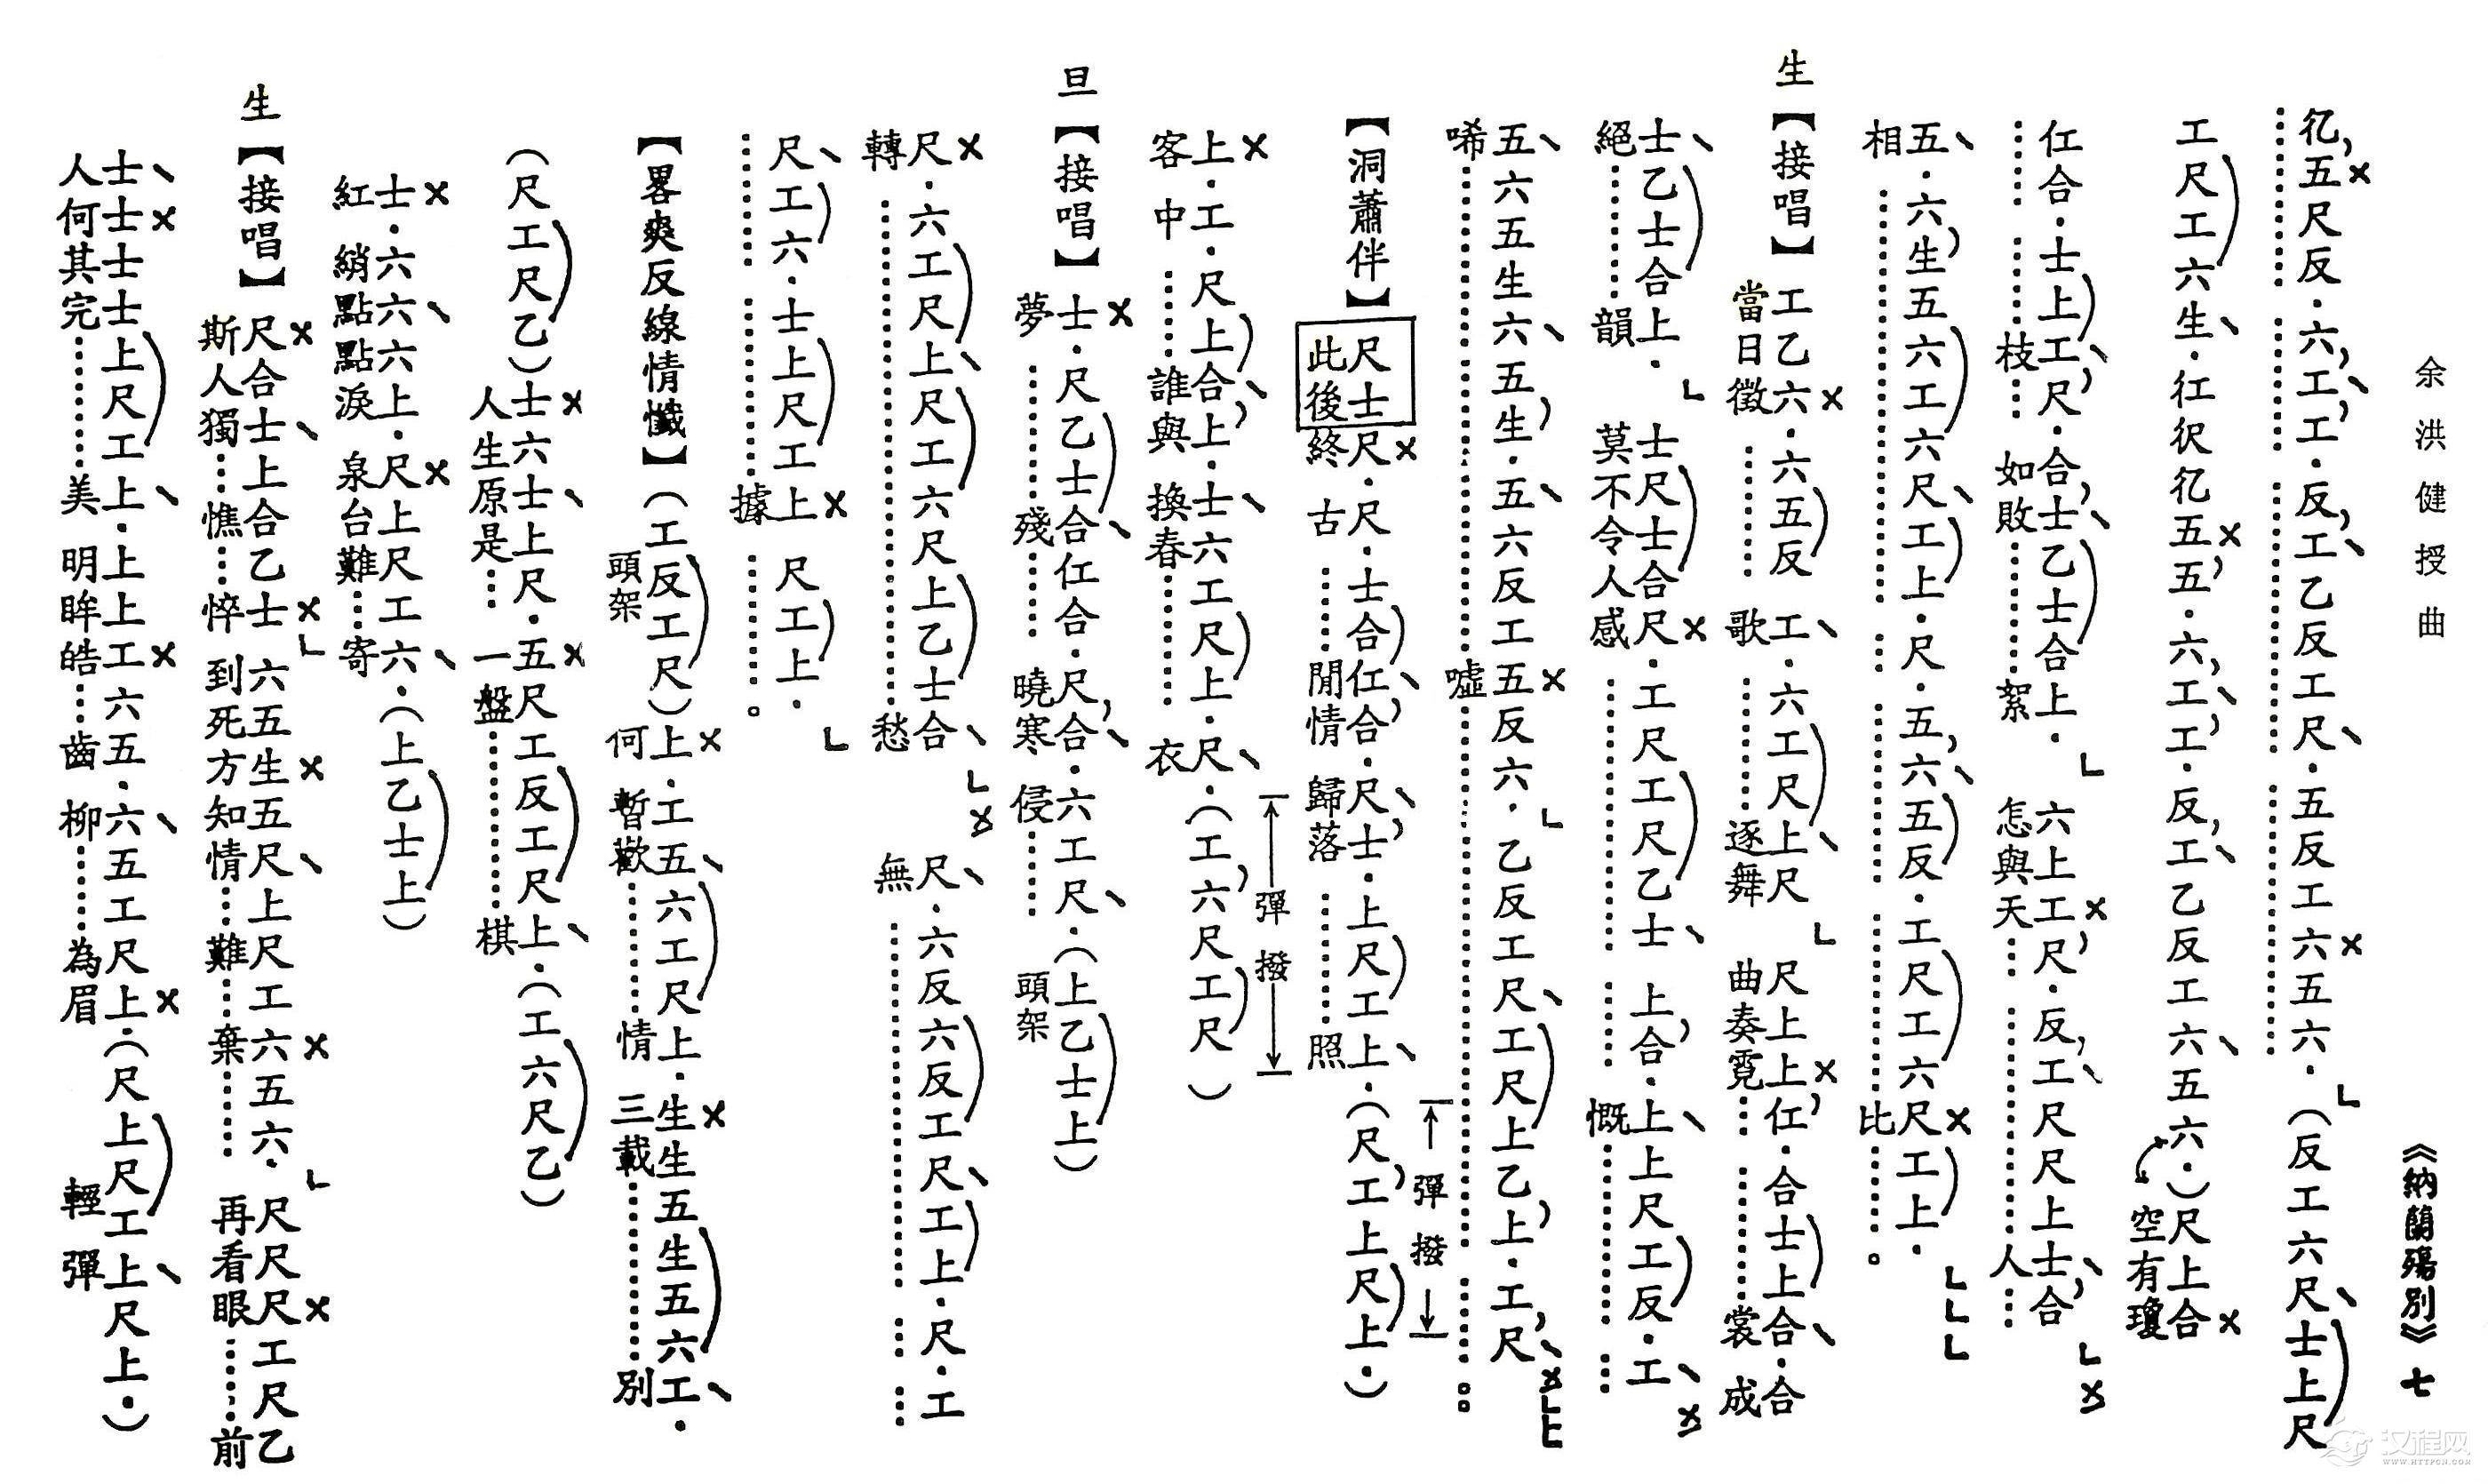 余洪健授曲
《納蘭殤別》七
亿五尺反.六工工.反工乙反工尺.五反工六五六.(反工六尺士上尺
工尺工六生.仜伬亿五五.六工工.反工乙反工六五六.)尺上合
空有瓊
仜合.士上工尺.合士乙士合上.六上工尺.反工尺尺上士合
枝如敗絮怎與天人
五.六生五六工六尺工上.尺.五六五反.工尺工六尺工上.
相比。
生【接唱】工乙六.六五反工.六工尺上尺尺上上仜.合士上合.合
當日徵歌逐舞曲奏霓裳成
士乙士合上.士尺士合尺.工尺工尺乙士上合.上上尺工反.工
絕韻莫不令人感慨
五六五生六五生.五六反工五反六.乙反工尺工尺上乙上.工尺
唏噓。
【洞蕭伴】尺士尺.尺.士合仜合.尺士.上尺工上.(尺工上尺上.)
此後終古閒情歸落照
彈撥
上.工.尺上合上.士六工尺上.尺.(工六尺工尺)
客中誰與換春衣
彈撥
旦【接唱】士.尺乙士合仜合.尺合.六工尺.(上乙士上)
夢殘曉寒侵頭架
尺.六工尺上尺工六尺上乙士合尺.六反六反工尺工上.尺.工
轉愁無
尺工六.士上尺工上尺工上.
據。
【畧爽反線情懺】(工反工尺)上.工五六工尺上.生生五生五六工.
頭架何暫歡情三載別
(尺工尺乙)士六士上尺.五尺工反工尺上.(工六尺乙)
人生原是一盤棋
士.六六六上.尺上尺工六.(上乙士上)
紅綃點點淚泉台難寄
生【接唱】尺合士上合乙士六五生五尺上尺工六五六.尺尺尺工尺乙
斯人獨憔悴到死方知情難棄再看眼前
士士士士上尺工上.上上工六五.六五工尺上(尺上尺工上尺上.)
人何其完美明眸皓齒柳為眉輕彈
汉程网
WWW.HTTPCN.COM